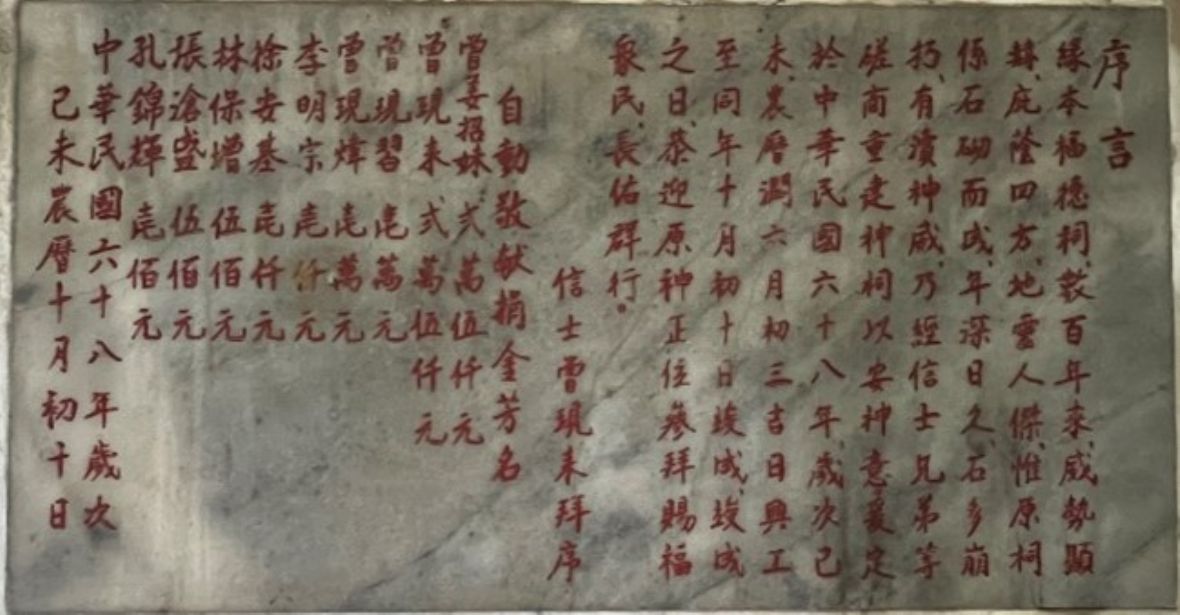 序言
緣本福德祠、數百年來、威勢顯
赫、庇蔭四方、地靈人傑、惟原祠
係石砌而成、年深日久、石多崩
朽、有瀆神威、乃經信士兄弟等
磋商重建神祠以安神意、爰定
於中華民國六十八年、歲次己
未、農曆潤六月初三吉日興工
至同年十月初十日竣成、竣成
之日、恭迎原神正位、參拜賜福
眾民、長佑群行。
信士曾現來拜序
自動敬献捐金芳名
曾姜招妹 弍萬伍仟元
曾現來 弍萬伍仟元
曾現習 壱萬元
曾現煒 壱萬元
李明宗 壱仟元
徐安基 壱仟元
林保增 伍佰元
張滄盛 伍佰元
孔錦輝 壱佰元
中華民國六十八年歲次
己未農曆十月初十日